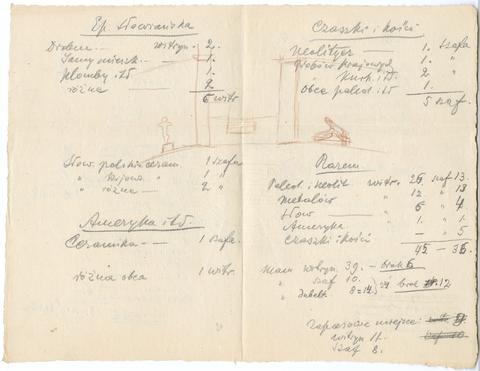 Ep. słowiańska
Drobne — witryn. 2.
Jamy mieszk. — 1.
plomby itd 1.
różna — 2
6 witr.
Słow. polskie ceram. 1 szafa
" " 1 "
" różna — 2 "
Ameryka itd.
Ceramika — 1 szafa.
różna obca 1 witr.
Czaszki i kości
Neolitycz — 1. szafa
grobów krajowych 1. "
" Kurh. itd. 2 "
obca paleol. itd 1.
5 szaf.
Razem
Paleol. i neolit witr. 26 szaf 13.
Metalów " 12 " 13
słow — " 6 " 4.
Ameryka " 1. " 1.
Czaszki i kości — " 5
45 – 36
mam witryn 39. – brak 6
" szaf 10.
" dubelt. 8=14 24 brak 12
zapasowe miejsce
witryn 11.
szaf 8.